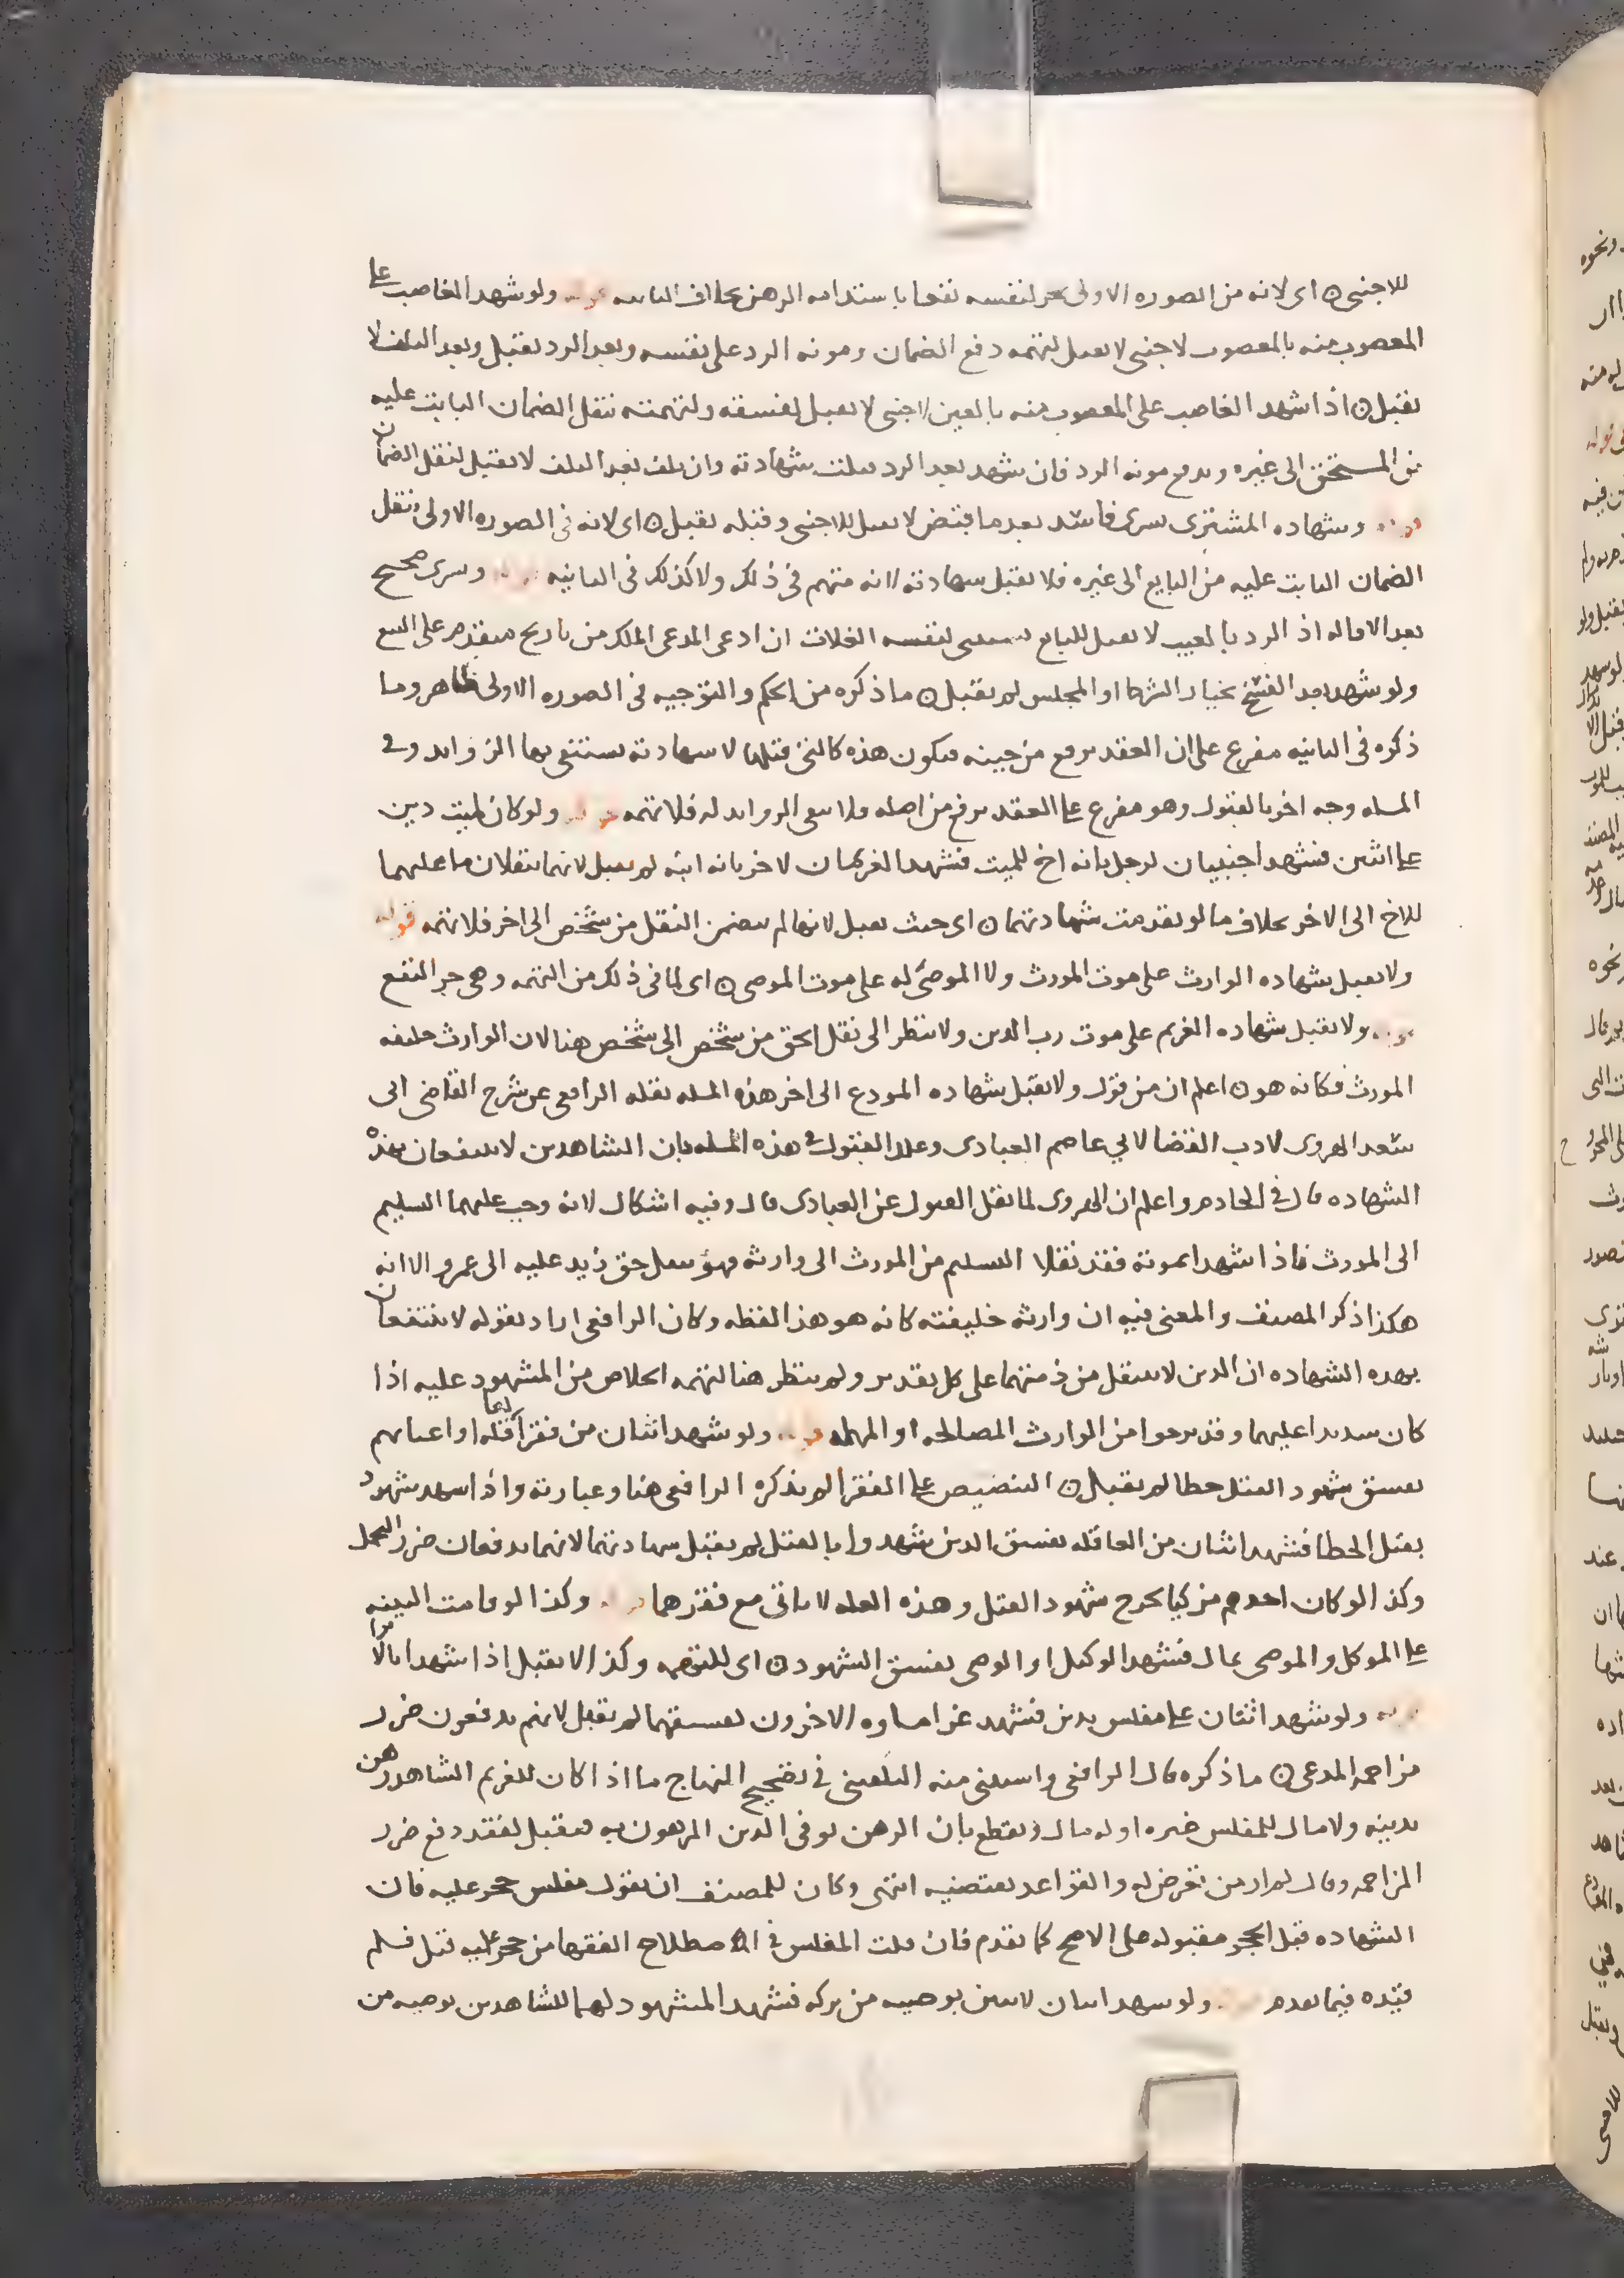 للاجنبي ن اي لانه من الصوره الاولى يجر لنفسه نفعا باستدامه الرهن بخلاف الثانيه قوله ولو شهد الغاصب على
المغصوب منه بالمغصوب لاجنبي لا يقبل لتهمه دفع الضمان ومونه الرد على نفسه وبعد الرد يقبل وبعد التلف لا
يقبل ن اذا شهد الغاصب على المغصوب منه بالعين لاجنبي لا يقبل لفسقه ولتهمته بنقل الضمان الثابت عليه
من المستحق الى غيره وبدفع مونه الرد فان شهد بعد الرد قبلت شهادته وان تلف فبعد التلف لا يقبل لنقل الضمان
قوله وشهاده المشتري شرى فاسد بعد ما قبض لا يقبل للاجنبي وقبله يقبل ن اي لانه في الصوره الاولى ينقل
الضمان الثابت عليه من البايع الى غيره فلا يقبل شهادته لانه متهم في ذلك ولا كذلك في الثانيه قوله وشرى صحيح
بعد الاقاله اذ الرد بالعيب لا يقبل للبايع لنفسه الغلات ان ادعى المدعي الملك من تاريخ متقدم على البيع
ولو شهد بعد الفسخ بخيار الشرط او المجلس لم يقبل ن ما ذكره من الحكم والتوجيه في الصوره الاولى ظاهر وما
ذكره في الثانيه مفرع على ان العقد يرفع من حينه فيكون هذه كالتي قبلها لا شهادته يستبقي بها الزوايد وفي
المسله وجه اخر بالقبول وهو مفرع على العقد يرفع من اصله ولا تبقى الزوايد له فلا تهمه قوله ولو كان لميت دين
على اثنين فشهد اجنبيان لرجل بانه اخ للميت فشهد الغريمان لاخر بانه ابنه لم يقبل لانهما ينقلان ما عليهما
للاخ الى الاخر بخلاف ما لو تقدمت شهادتهما ن اي حيث يقبل لانها لم تتضمن النقل من شخص الى اخر فلا تهمه قوله
ولا يقبل شهاده الوارث على موت المورث ولا الموصى له على موت الموصي ن اي لما في ذلك من التهمه وهي جر النفع
قوله ولا يقبل شهاده الغريم على موت رب الدين ولا ينظر الى نقل الحق من شخص الى شخص هنا لان الوارث خليفه
المورث فكانه هو ن اعلم ان من قوله ولا يقبل شهاده المودع الى اخر هذه المسله نقله الرافعي عن شرح القاضي ابي
سعد الهروي لادب القضا لابي عاصم العبادي وعلل القبول في هذه المسله بان الشاهدين لا ينتفعان بهذه
الشهاده قال في الخادم واعلم ان الهروي لما نقل القبول عن العبادي قال وفيه اشكال لانه وجب عليهما التسليم
الى المورث فاذا شهدا بموته فقد نقلا التسليم من المورث الى وارثه فهو كنقل حق زيد عليه الى عمرو الا انه
هكذا ذكر المصنف والمعنى فيه ان وارثه خليفته كانه هو هذا لفظه وكان الرافعي اراد بقوله لا ينتفعان
بهذه الشهاده ان الدين لا ينتقل من ذمتهما على كل تقدير ولم ينظر هنا لتهمه الخلاص من المشهود عليه اذا
كان شديدا عليهما وقد يرجوا من الوارث المصالحه او المهله قوله ولو شهد اثنان من فقرا قتله او اغنيائهم
بفسق شهود القتل خطا لم يقبل ن التنصيص على الفقرا لم يذكره الرافعي هنا وعبارته واذا شهد شهود
بقتل الخطا فشهد اثنان من العاقله بفسق الذين شهدوا بالقتل لم يقبل شهادتهما لانهما يدفعان ضرر التحمل
وكذا لو كان احدهم مزكيا بجرح شهود القتل وهذه العله لا تاتي مع فقرهما قوله وكذا لو قامت البينه
على الموكل والموصي بمال فشهد الوكيل او الوصي بفسق الشهود ن اي للتهمه وكذا لا يقبل اذا شهدا بالابرا
قوله ولو شهد اثنان على مفلس بدين فشهد غرماوه الاخرون بفسقهما لم يقبل لانهم يدفعون ضرر
مزاحمه المدعي ن ما ذكره قال الرافعي واستثنى منه البلقيني في تصحيح المنهاج ما اذا كان للغريم الشاهد رهن
بدينه ولا مال للمفلس غيره او له مال ويقطع بان الرهن يوفي الدين المرهون به فيقبل لفقد دفع ضرر
المزاحمه وقال لم ار من تعرض له والقواعد تقتضيه انتهى وكان للمصنف ان يقول مفلس حجر عليه فان
الشهاده قبل الحجر مقبوله على الاصح كما تقدم فان قلت المفلس في اصطلاح الفقها من حجر عليه قيل فلم
قيده فيما تقدم قوله ولو شهد اثنان لاثنين بوصيه من تركه فشهد المشهود لهما للشاهدين بوصيه من